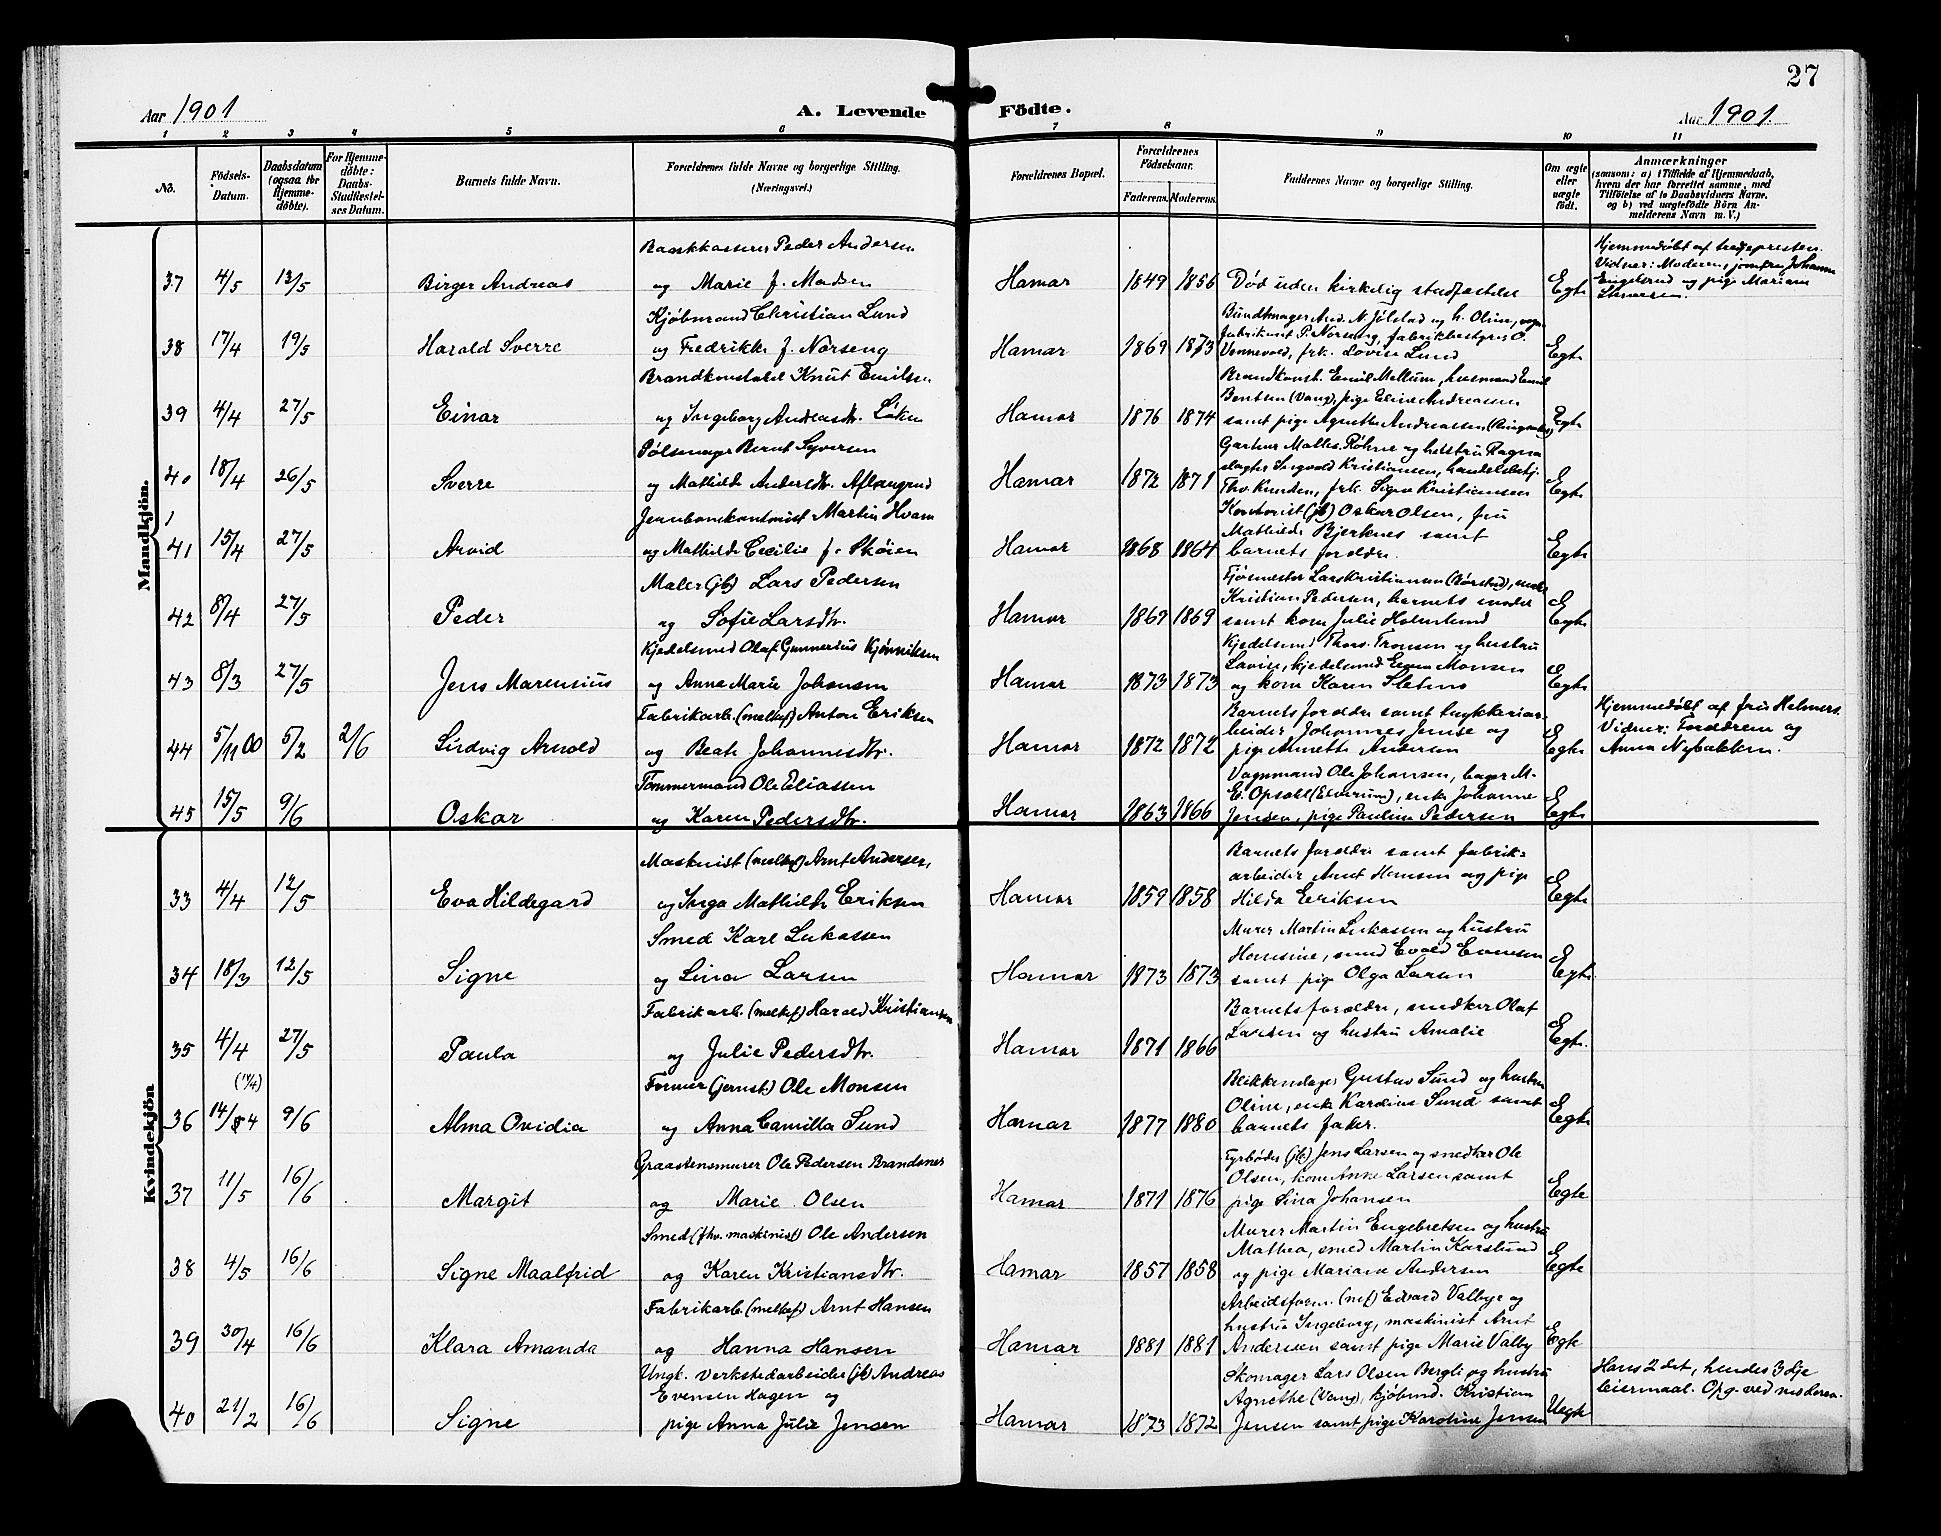 27
Aar 1901
A. Levende
Födte.
Aar 1901.
1 2 3 4 5 6 7 8 9 10 11
No.
Födsels-
Datum.
Daabsdatum
(ogsaa for
Hjemme-
döbte).
For Hjemme-
döbte:
Daabs-
Stadfæstel-
ses Datum.
Barnets fulde Navn.
Forældrenes fulde Navne og borgerlige Stilling.
(Næringsvei.)
Forældrenes Bopæl.
Forældrenes
Födselsaar.
Faderens. Moderens.
Faddernes Navne og borgerlige Stilling.
Om ægte
eller
uægte
födt.
Anmærkninger
(saasom: a) i Tilfælde af Hjemmedaab,
hvem der har forrettet samme, med
Tilföielse af to Daabsvidners Navne,
og b) ved uægtefödte Börn An-
melderens Navn m. V.)
Mandkjön.
37 4/5 13/5 Birger Andreas
Bankkasserer Peder Andersen
og Marie f. Madsen
Hamar 1849 1856 Död uden kirkelig stadfæstelse Egte
Hjemmedøbt af
Vidner: Moderen, jomfru Johanne
Engelsrud og pige Mariane
38 17/4 19/5 Harald Sverre
Kjöbmand Christian Lund
og Fredrikke f. Norseng
Hamar 1869 1873
Bundtmager And. N. Jölstad og h. Oline,
fabrikant P. Norseng, fabrikbestyrer O.
Vennevold, frk. Lovise Lund Egte
39 4/4 27/5 Einar
Brandkonstabel Knut Emilsen
og Ingeborg Andreasdtr. Löken
Hamar 1876 1874
Brandkonst. Emil Mellum, husmand Emil
Bentsen (Vang), pige Eline Andreassen
samt pige Agnethe Andreassen (Ringsaker) Egte
40 18/4 26/5 Sverre
Pölsemager Bernt Syversen
og Mathilde Andersdtr. Aflangrud
Hamar 1872 1871
Garver Mathis Röhne og hustru Ragna
slagter Ingvald Kristiansen, handelsbetj.
Thv. Kunden, frk. Signe Kristiansen Egte
41 15/4 27/5 Arvid
Jernbanekontorist Martin Hvam
og Mathilde Cecilie f. Sköien
Hamar 1868 1864
Kontorist (jb) Oskar Olsen, fru
Mathilde Bjerknes samt
barnets foreldre. Egte
42 8/4 27/5 Peder
Maler (jb) Lars Pedersen
og Sofie Larsdtr.
Hamar 1869 1869
Fjösmester Lars Kristiansen (Börstad),
Kristian Pedersen, barnets moder
samt kone Julie Holmlund Egte
43 8/3 27/5 Jens Marensius
Kjedelsmed Olaf Gunnerius Kjönniksen
og Anna Marie Johansen
Hamar 1873 1873
Kjedelsmed Thors. Tronsen og hustru
Lovise, kjedelsmed Even Monsen
og kone Karen Sletmo Egte
44 5/11 00 5/2 2/6 Sirdvig Arnold
Fabrikarb. (melkef) Anton Eriksen
og Beate Johannesdtr.
Hamar 1872 1872
Barnets foreldre samt trykkeriar-
beider Johannes Jense og
pige Annette Andersen Egte
Hjemmedøbt af fru Helmers.
Vidner: Foreldrene og
Anna Nybakken.
45 15/5 9/6 Oskar
Tømmermand Ole Eliassen
og Karen Pedersdtr.
Hamar 1863 1866
Vognmand Ole Johansen, bager M.
E. Opsahl (Elverum), enke Johanne
Jensen, pige Pauline Pedersen Egte
Kvindekjön
33 4/4 12/5 Eva Hildegard
Maskinist (melkef) Arnt Andersen,
og Inga Mathilde Eriksen
Hamar 1859 1858
Barnets foreldre samt fabrik-
arbeider Arnt Hansen og pige
Hilda Eriksen Egte
34 18/3 12/5 Signe
Smed Karl Lukassen
og Lina Larsen
Hamar 1873 1873
Murer Martin Lukassen og hustru
Hansine, smed Evald Evensen
samt pige Olga Larsen Egte
35 4/4 27/5 Paula
Fabrikarb. (melkef) Harald Kristiansen
og Julie Pedersdtr.
Hamar 1871 1866
Barnets foreldre, snedker Olaf
Larsen og hustru Amalie Egte.
(14/4)
36 14/4 9/6 Alma Ovidia
Former (jernst.) Ole Monsen
og Anna Camilla Sund
Hamar 1877 1880
Blikkenslager Gustav Sund og hustru
Oline, enke Kardine Sund samt
barnets fader. Egte
37 11/5 16/6 Margit
Graastensmurer Ole Pedersen Brandsnes
og Marie Olsen
Hamar 1871 1876
Fyrböder (jb) Jens Larsen og snedker Ole
Olsen, kone Anne Larsen samt
pige Lina Johansen Egte
38 4/5 16/6 Signe Maalfrid
Smed (fhv. maskinist) Ole Andersen
og Karen Kristiansdtr.
Hamar 1857 1858
Murer Martin Engebretsen og hustru
Mathea, smed Martin Karslund
og pige Mariane Andersen Egte
39 30/4 16/6 Klara Amanda
Fabrikarb. (melkef) Arnt Hansen
og Hanna Hansen
Hamar 1881 1881
Arbeidsform. (nef) Edvard Valbye og
hustru Ingeborg, maskinist Arnt
Andersen samt pige Marie Valby Egte
40 21/2 16/6 Signe
Ungk. verkstedarbeider (jb) Andreas
Evensen Hagen og
pige Anna Julie Jensen
Hamar 1873 1872
Skomager Lars Olsen Bergli og hustru
Agnethe (Vang), kjöbmd. Kristian
Jensen samt pige Karoline Jensen Uegte
Hans 2det, hendes 3die
leiermaal. Opg. ved moderen.